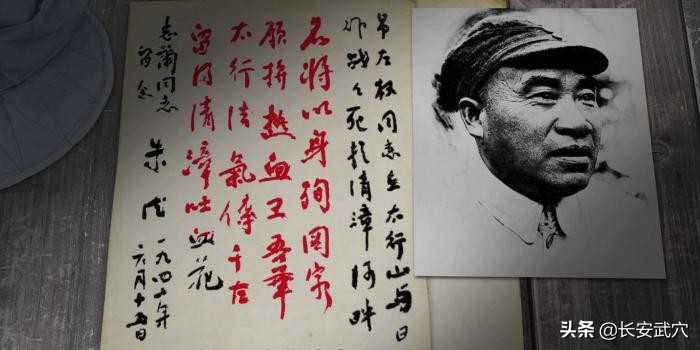 吊左权同志在太行山与日
作战々死於清漳河畔
名将以身殉国家
愿拚热血卫吾华
太行浩气传千古
留得清漳吐血花
志蘭同志
留念
朱德
一九四二年
六月十五日
头条 @长安武穴